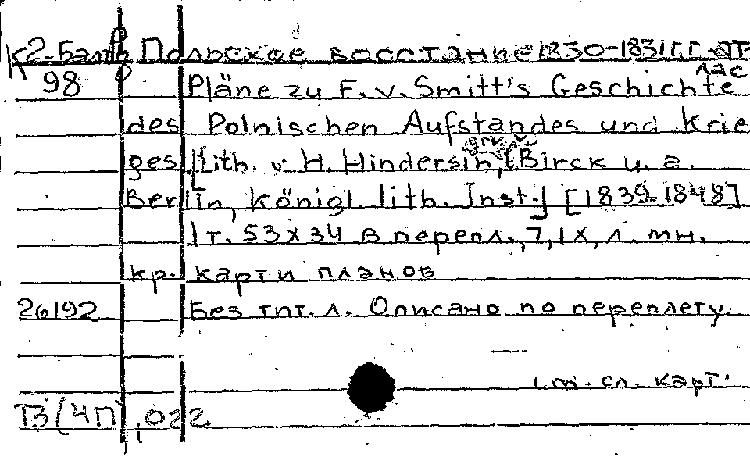 К2-Балт Польское восстание 1830-1831 г.г. - ат-
лас
98 Pläne zu F. v. Smitt's Geschichte
des Polnischen Aufstandes und Krie
ges [Lith. v. H. Hindersin, grv. v. Birck u. a.
Berlin, Königl lith. Inst.] [1839-1848]
1 т. 53х34 в перепл., 7, IX, л. мн.
кр. карт и планов
26192 Без тит. л. Описано по переплету.
1 т. сл. карт.
Т3(4П),022